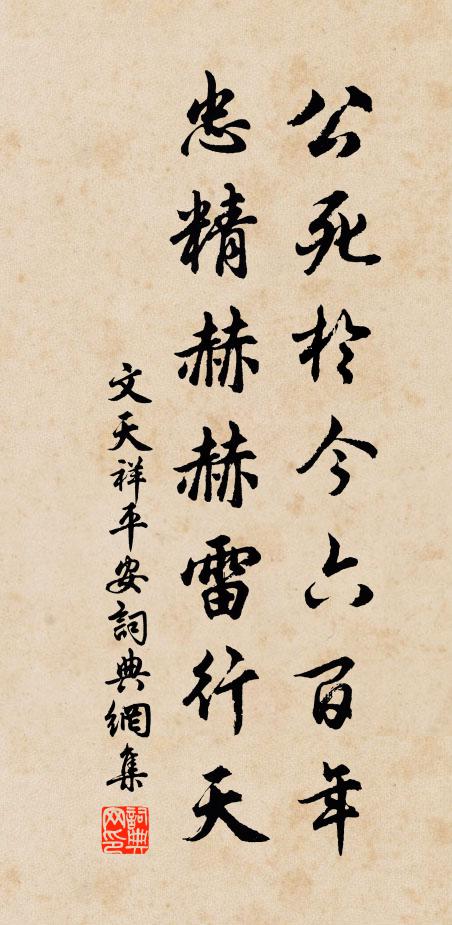 公死於今六百年
忠精赫赫雷行天
文天祥平安詞典網集
詞典网印